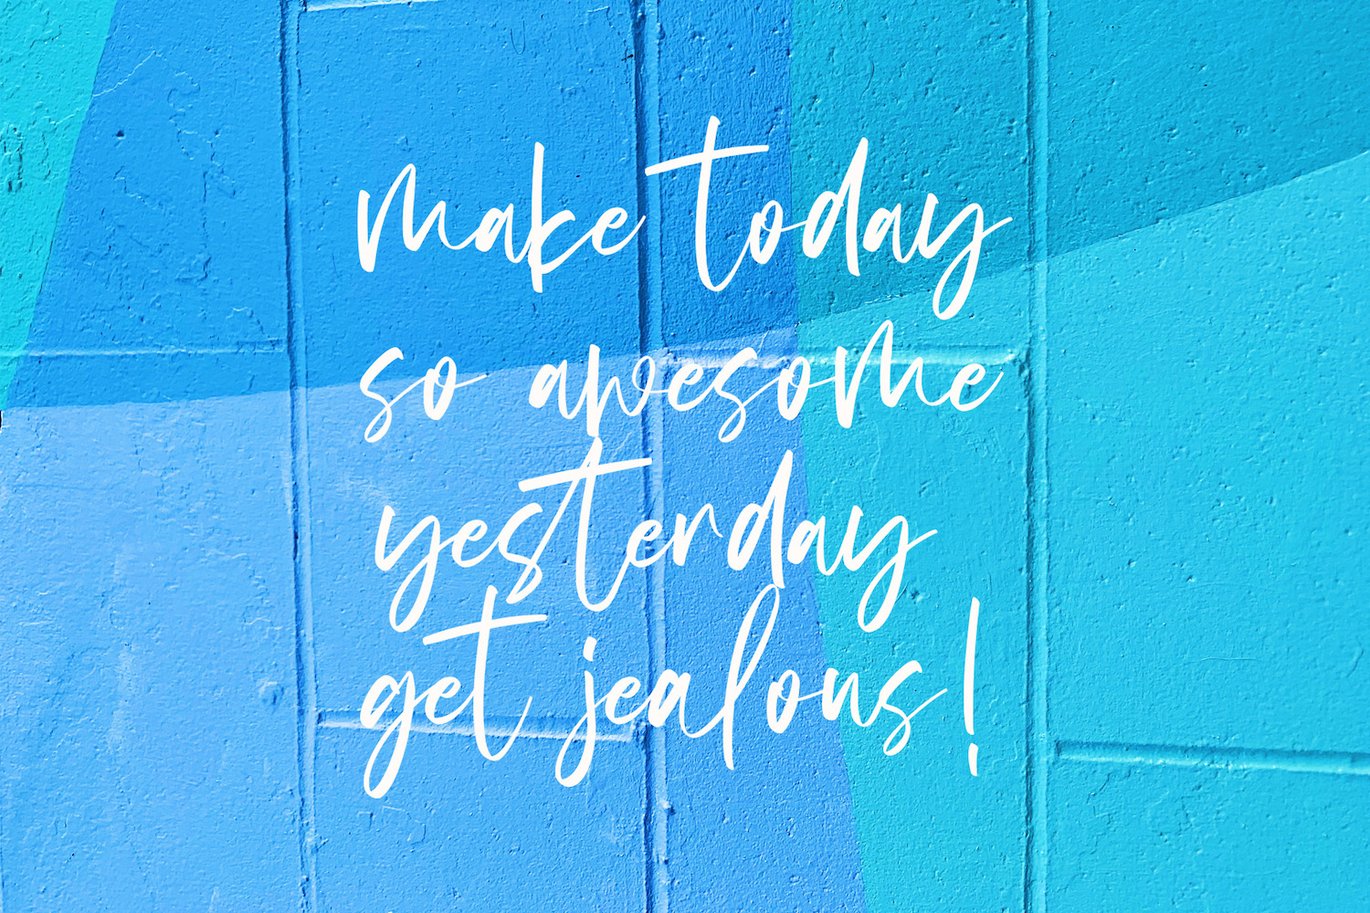 make today
so awesome
yesterday
get jealous!